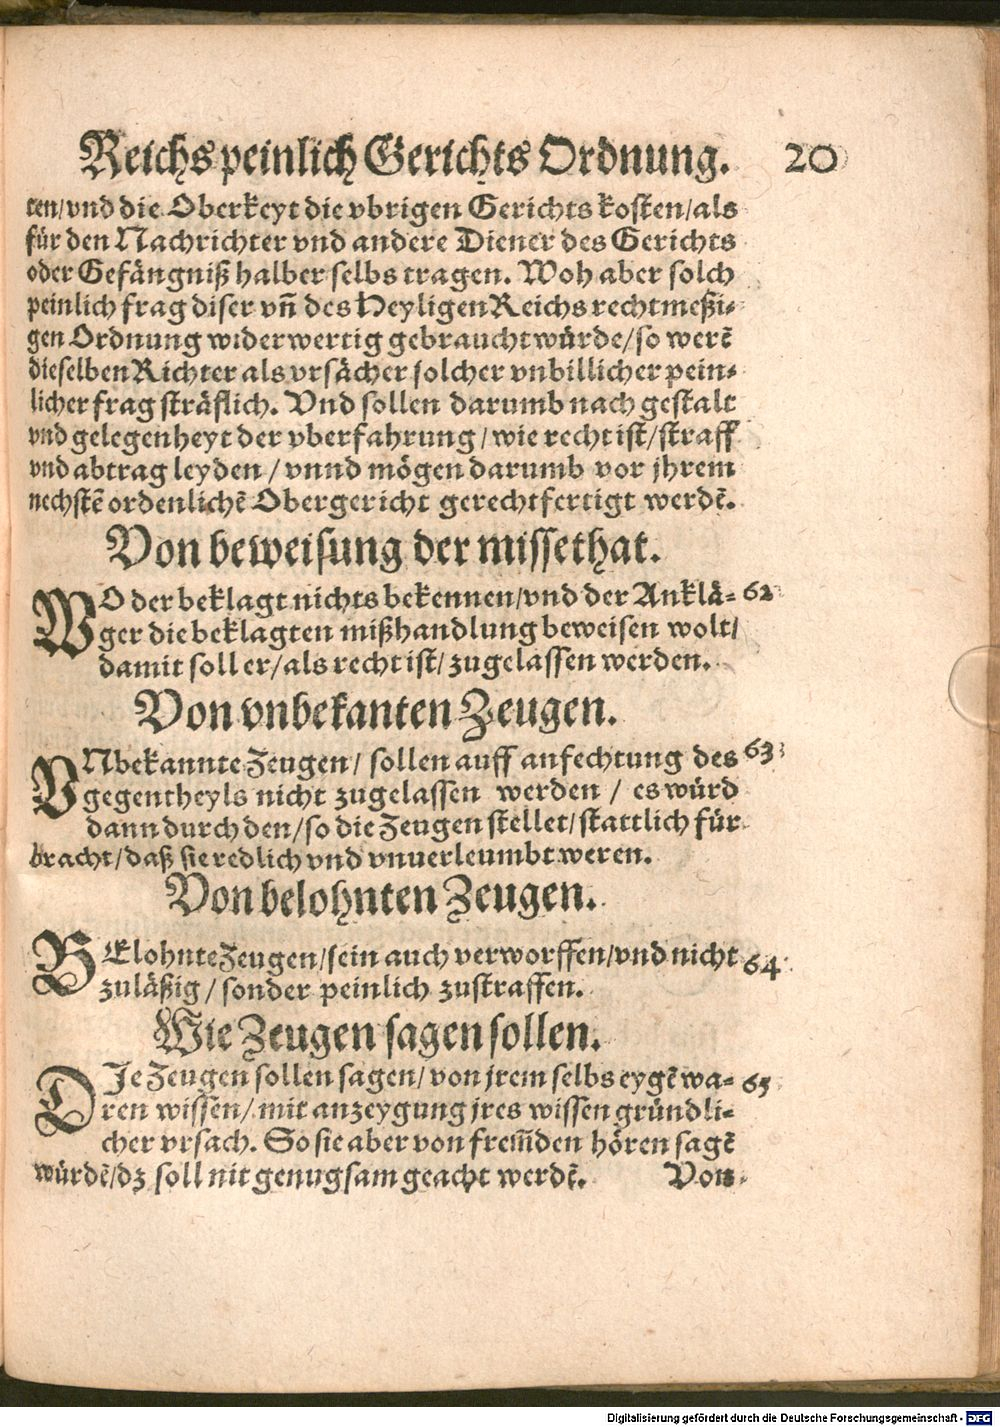 Reichs peinlich Gerichts Ordnung. 20
ten/vnd die Oberkeyt die vbrigen Gerichts kosten/als
für den Nachrichter vnd andere Diener des Gerichts
oder Gefängniß halber selbs tragen. Woh aber solch
peinlich frag diser vñ des Heyligen Reichs rechtmeßi-
gen Ordnung widerwertig gebraucht würde/so werẽ
dieselben Richter als vrsächer solcher vnbillicher pein-
licher frag sträflich. Vnd sollen darumb nach gestalt
vnd gelegenheyt der vberfahrung/wie recht ist/straff
vnd abtrag leyden/vnnd mögen darumb vor jhrem
nechstẽ ordenlichẽ Obergericht gerechtfertigt werdẽ.
Von beweisung der missethat.
WO der beklagt nichts bekennen/vnd der Anklä- 62
ger die beklagten mißhandlung beweisen wolt/
damit soll er/als recht ist/zugelassen werden.
Von vnbekanten Zeugen.
VNbekannte Zeugen/sollen auff anfechtung des 63
gegentheyls nicht zugelassen werden/es würd
dann durch den/so die Zeugen stellet/stattlich für
bracht/daß sie redlich vnd vnuerleumbt weren.
Von belohnten Zeugen.
BElohnte Zeugen/sein auch verworffen/vnd nicht 64
zuläßig/sonder peinlich zustraffen.
Wie Zeugen sagen sollen.
DJe Zeugen sollen sagen/von jrem selbs eygẽ wa- 65
ren wissen/mit anzeygung jres wissen gründli-
cher vrsach. So sie aber von frem̃den hören sagẽ
würdẽ/dz soll nit genugsam geacht werdẽ. Von
Digitalisierung gefördert durch die Deutsche Forschungsgemeinschaft - DFG